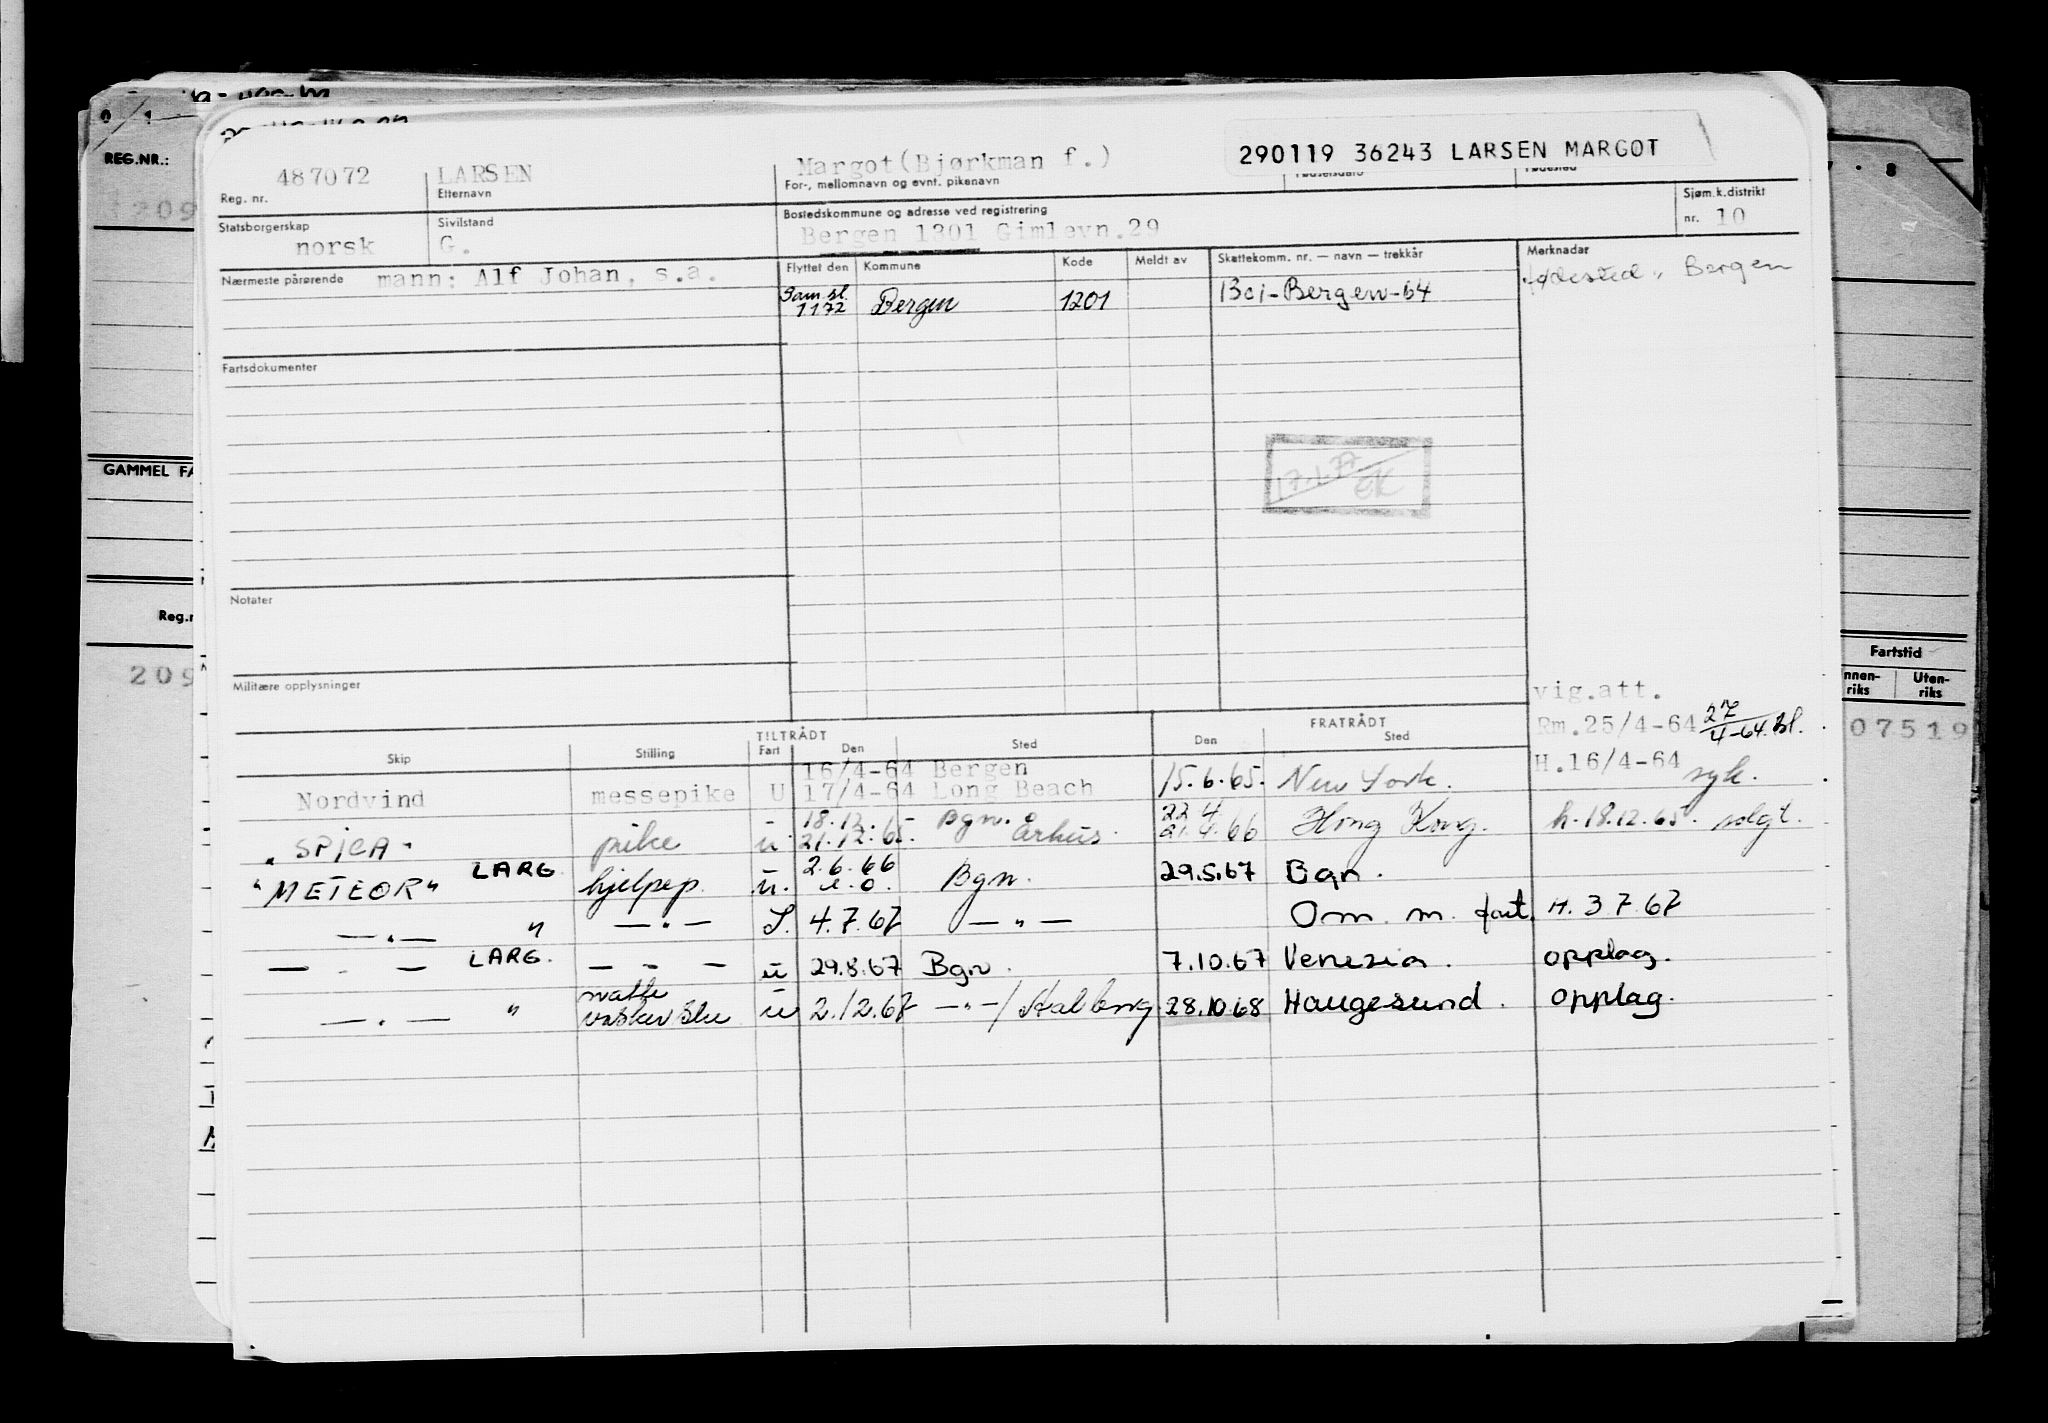 290119 36243 LARSEN MARGOT
487072 LARSEN Margot(Bjørkman f.)
Reg. nr. Etternavn For-, mellomnavn og evnt. pikenavn Fødselsdato Fødested
Statsborgerskap Sivilstand Bostedskommune og adresse ved registrering Sjøm.k.distrikt
norsk G. Bergen 1301 Gimlevn.29 nr. 10
Nærmeste pårørende mann: Alf Johan, s.a.
Flyttet den Kommune Kode Meldt av Skattekomm. nr. — navn — trekkår Merknadar
Sam.sl. 1301-Bergen-64 fødested: Bergen
1172 Bergen 1201
Fartsdokumenter
17.1.77
EK
Notater
Militære opplysninger
vig.att.
Rm.25/4-64 27/4-64. Bl.
TILTRÅDT FRATRÅDT
Skip Stilling Fart Den Sted Den Sted
16/4-64 Bergen H.16/4-64
Nordvind messepike U 17/4-64 Long Beach 15.6.65. New York. syk.
- 18.12. - Bgn. 22 4
"SPICA" pike u 21.12.65. Århus. 21.4.66 Hong Kong. h.18.12.65. solgt.
LARG 2.6.66
"METEOR" hjelpep. u. e.o. Bgn. 29.5.67 Bgn.
— " — " — " — I. 4.7.67 — " — Om. m. fart. H. 3 7 67
— - — LARG. — - — u 29.8.67 Bgn. 7.10.67 Venezia. opplag.
— " — " vaskerske u 2.12.67 — " — / 28.10.68 Haugesund. opplag.
REG.NR.:
209
GAMMEL FA
Reg.n
209
Fartstid
nnen-
riks
Uten-
riks
07519